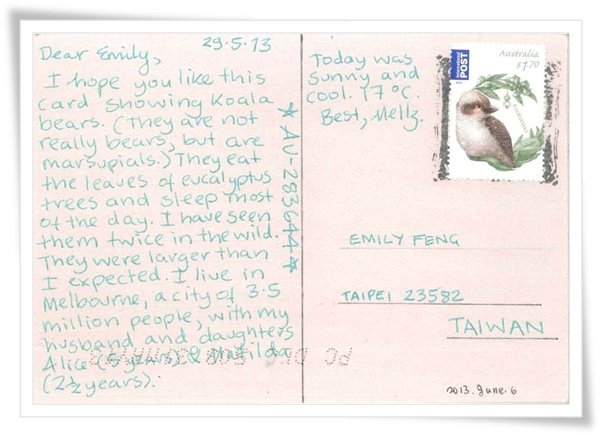 29.5.13
Dear Emily,
I hope you like this
card showing Koala
bears. (They are not
really bears, but are
marsupials.) They eat
the leaves of eucalyptus
trees and sleep most
of the day. I have seen
them twice in the wild.
They were larger than
I expected. I live in
Melbourne, a city of 3.5
million people, with my
husband and daughters
Alice (5 years) & Matilda
(2½ years).
★ AU-283644 ★
Today was
sunny and
cool. 17°C.
Best, Mellz.
International
POST
Australia
$1.70
EMILY FENG
TAIPEI 23582
TAIWAN
2013. June. 6